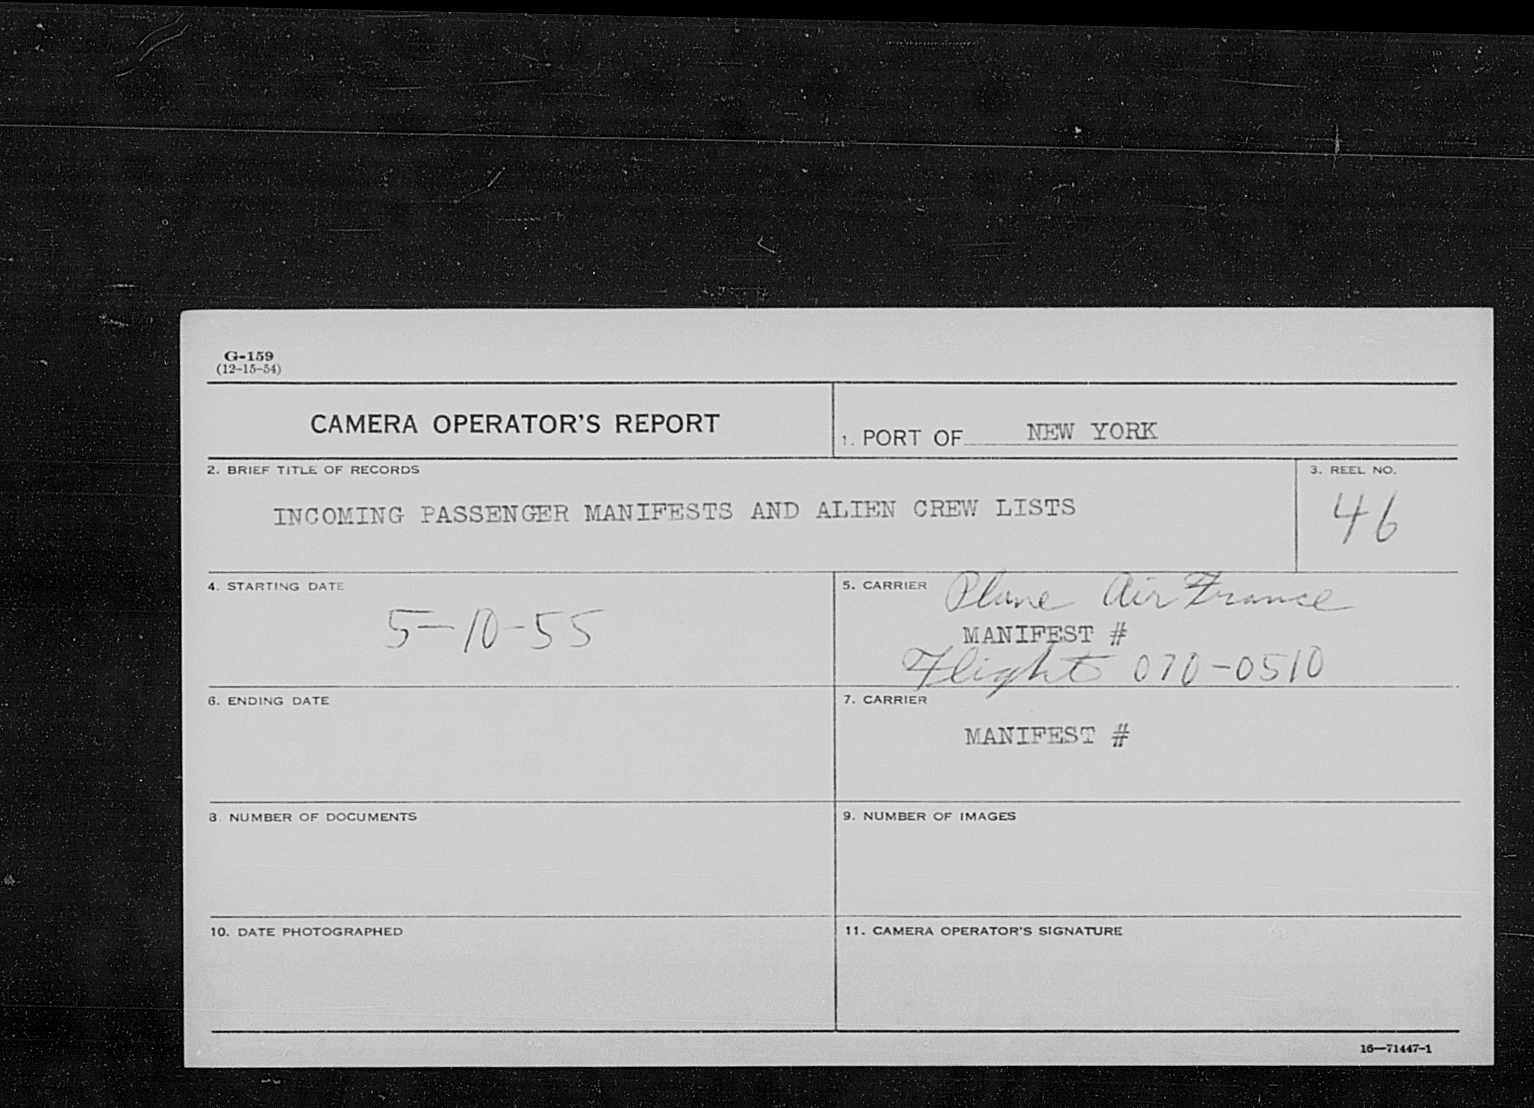 G-159
(12-15-54)
CAMERA OPERATOR'S REPORT
1. PORT OF NEW YORK
2. BRIEF TITLE OF RECORDS
INCOMING PASSENGER MANIFESTS AND ALIEN CREW LISTS
3. REEL NO.
46
4. STARTING DATE
5-10-55
5. CARRIER Plane Air France
MANIFEST #
Flight 070-0510
6. ENDING DATE
7. CARRIER
MANIFEST #
8. NUMBER OF DOCUMENTS
9. NUMBER OF IMAGES
10. DATE PHOTOGRAPHED
11. CAMERA OPERATOR'S SIGNATURE
16—71447-1